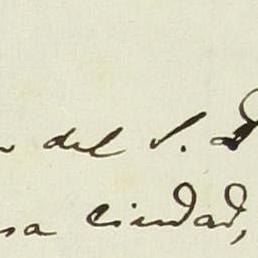 del S. D
sa ciudad,